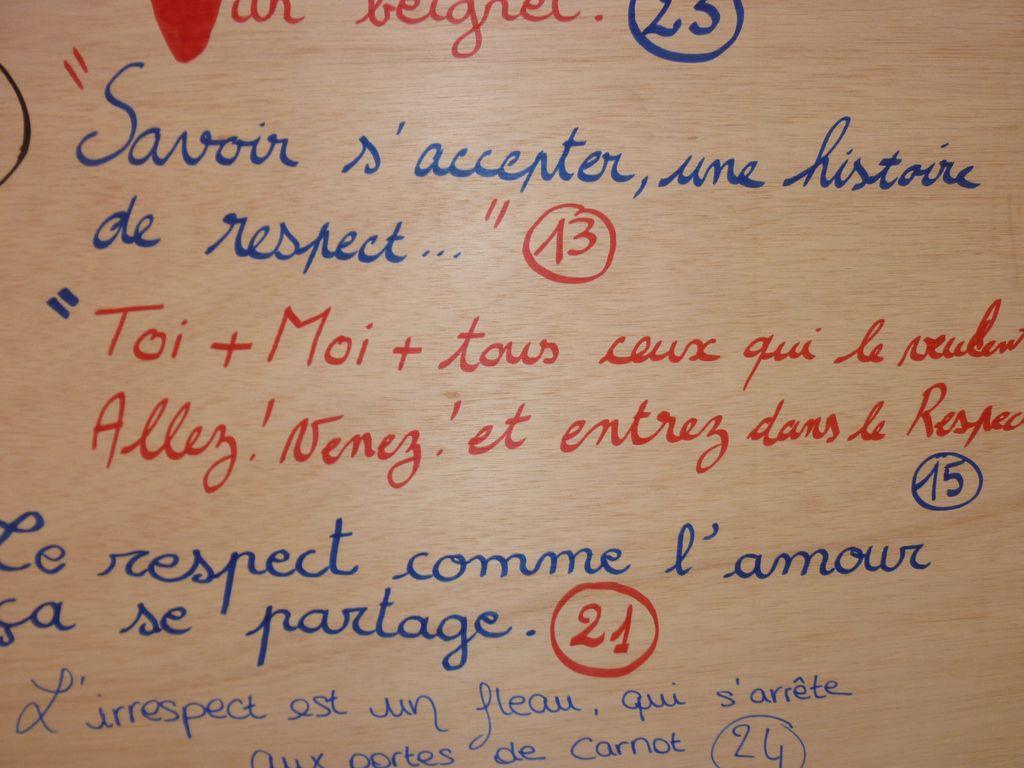 un beignet. 23
"Savoir s'accepter, une histoire
de respect..." 13
"Toi + Moi + tous ceux qui le veulent
Allez! Venez! et entrez dans le Respec
15
Le respect comme l'amour
ça se partage. 21
L'irrespect est un fleau, qui s'arrête
aux portes de Carnot 24